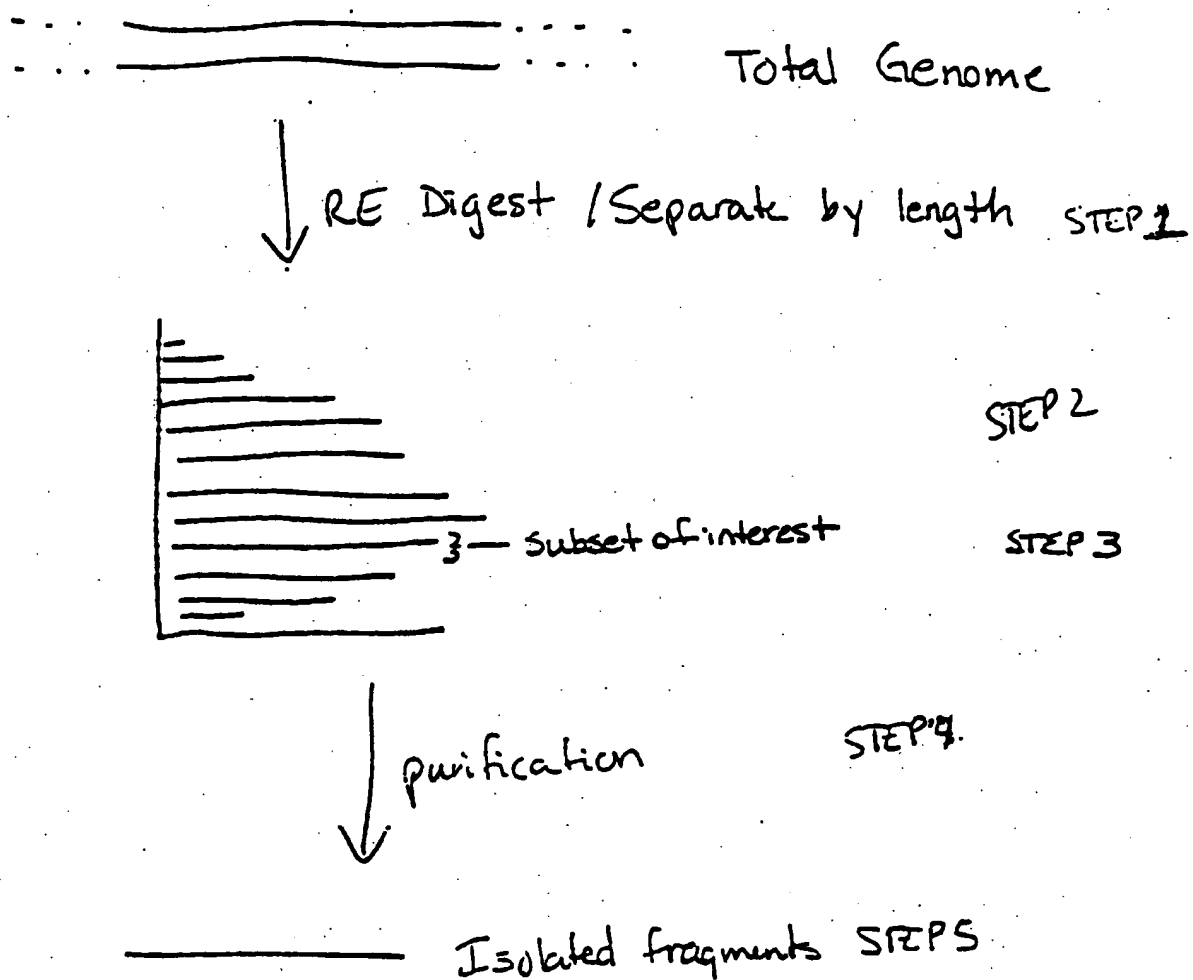 Total Genome
RE Digest / Separate by length STEP 1
STEP 2
} — subset of interest STEP 3
purification STEP 4.
Isolated fragments STEP 5